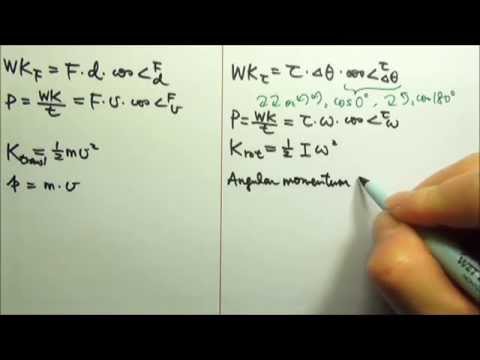 WK_F = F · d · cos<^F_d
P = WK/t = F · v · cos<^F_v
K_transl = 1/2 m v²
p = m · v
WK_τ = τ · Δθ · cos<^τ_Δθ
cos0°, cos180°
P = WK/t = τ · ω · cos<^τ_ω
K_rot = 1/2 I ω²
Angular momentum